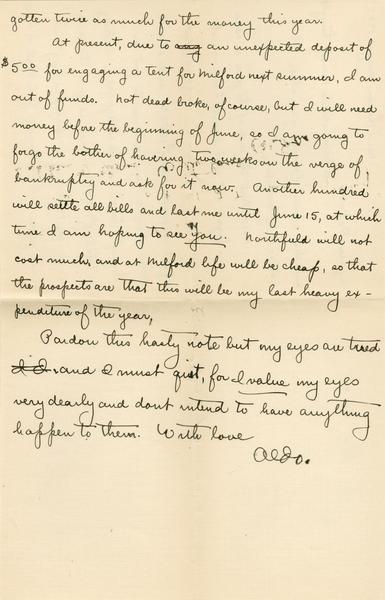 gotten twice as much for the money this year.
At present, due to an unexpected deposit of
$5.00 for engaging a tent for Milford next summer, I am
out of funds. Not dead broke, of course, but I will need
money before the beginning of June, so I am going to
forgo the bother of hovering two weeks on the verge of
bankruptcy and ask for it now. Another hundred
will settle all bills and last me until June 15, at which
time I am hoping to see you. Northfield will not
cost much, and at Milford life will be cheap, so that
the prospects are that this will be my last heavy ex-
penditure of the year,
Pardon this hasty note but my eyes are tired
and I must quit, for I value my eyes
very dearly and dont intend to have anything
happen to them. With love
Aldo.